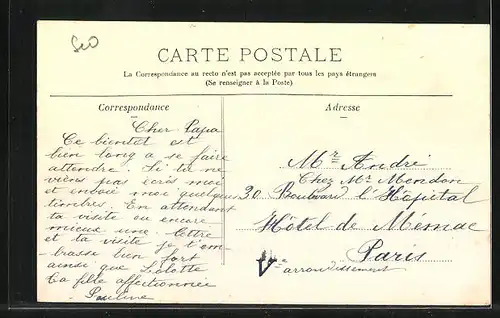 CARTE POSTALE
La Correspondance au recto n'est pas acceptée par tous les pays étrangers
(Se renseigner à la Poste)
Correspondance
Cher Papa
Ce bientot est
bien long a se faire
attendre. Si tu ne
viens pas écris moi
et envoie moi quelques
timbres. En attendant
ta visite ou encore
mieux une lettre
et ta visite je t'em-
brasse bien fort
ainsi que Lolotte
Ta fille affectionnée
Pauline
Adresse
Mr André
Chez Mr Meredon
30 Boulevard l'Hôpital
Hôtel de
Paris
Ve arrondissement